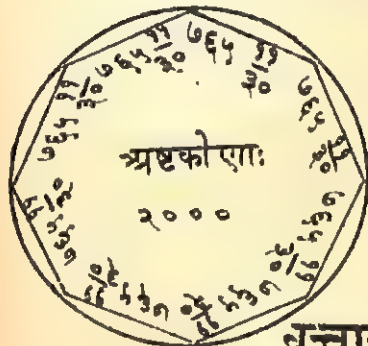 ७६५ ११/३०
७६५ ११/३०
७६५ ११/३०
७६५ ११/३०
७६५ ११/३०
७६५ ११/३०
७६५ ११/३०
७६५ ११/३०
अष्टकोणः
२०००